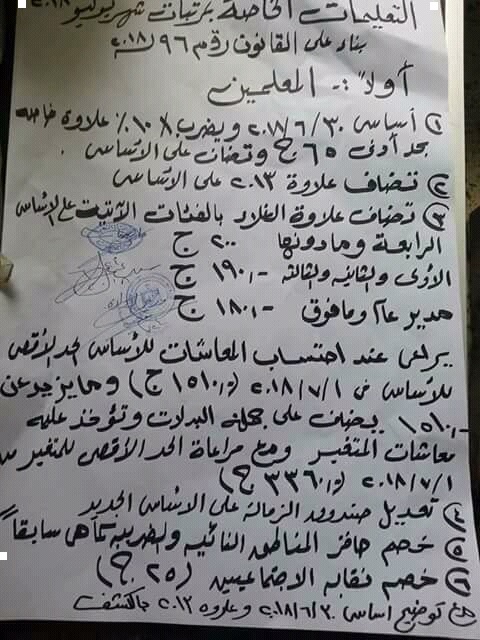 التعليمات الخاصة بمرتبات شهر يوليو ٢٠١٨
بناء على القانون رقم ٩٦ لسنة ٢٠١٨
أولاً :- المعلمين
① أساسى ٢٠١٧/٦/٣٠ ويضرب × ١٠٪ علاوة خاصة
بحد أدنى ٦٥ ج وتضاف على الأساسى .
② تضاف علاوة ٢٠١٣ على الأساسى
③ تضاف علاوة الغلاء بالفئات الآتية على الأساسى
الرابعة وما دونها ٢٠٠ ج
الأولى والثانية والثالثة ١٩٠,- ج
مدير عام وما فوق ١٨٠,- ج
يراعى عند احتساب المعاشات للأساسى الحد الأقصى
للأساسى فى ٢٠١٨/٧/١ (١٥١٠,- ج) وما يزيد عن
١٥١٠,- يضاف على جملة البدلات وتؤخذ عليه
معاشات المتغير ومع مراعاة الحد الأقصى للمتغير من
٢٠١٨/٧/١ (٣٣٦٠,- ج)
④ تعديل صندوق الزمالة على الأساسى الجديد
⑤ خصم حافز المناطق النائية والضريبة كما هى سابقاً
⑥ خصم نقابة الاجتماعيين (٢٥ ج)
مع توضيح أساسى ٢٠١٨/٦/٣٠ وعلاوة ٢٠١٣ بالكشف